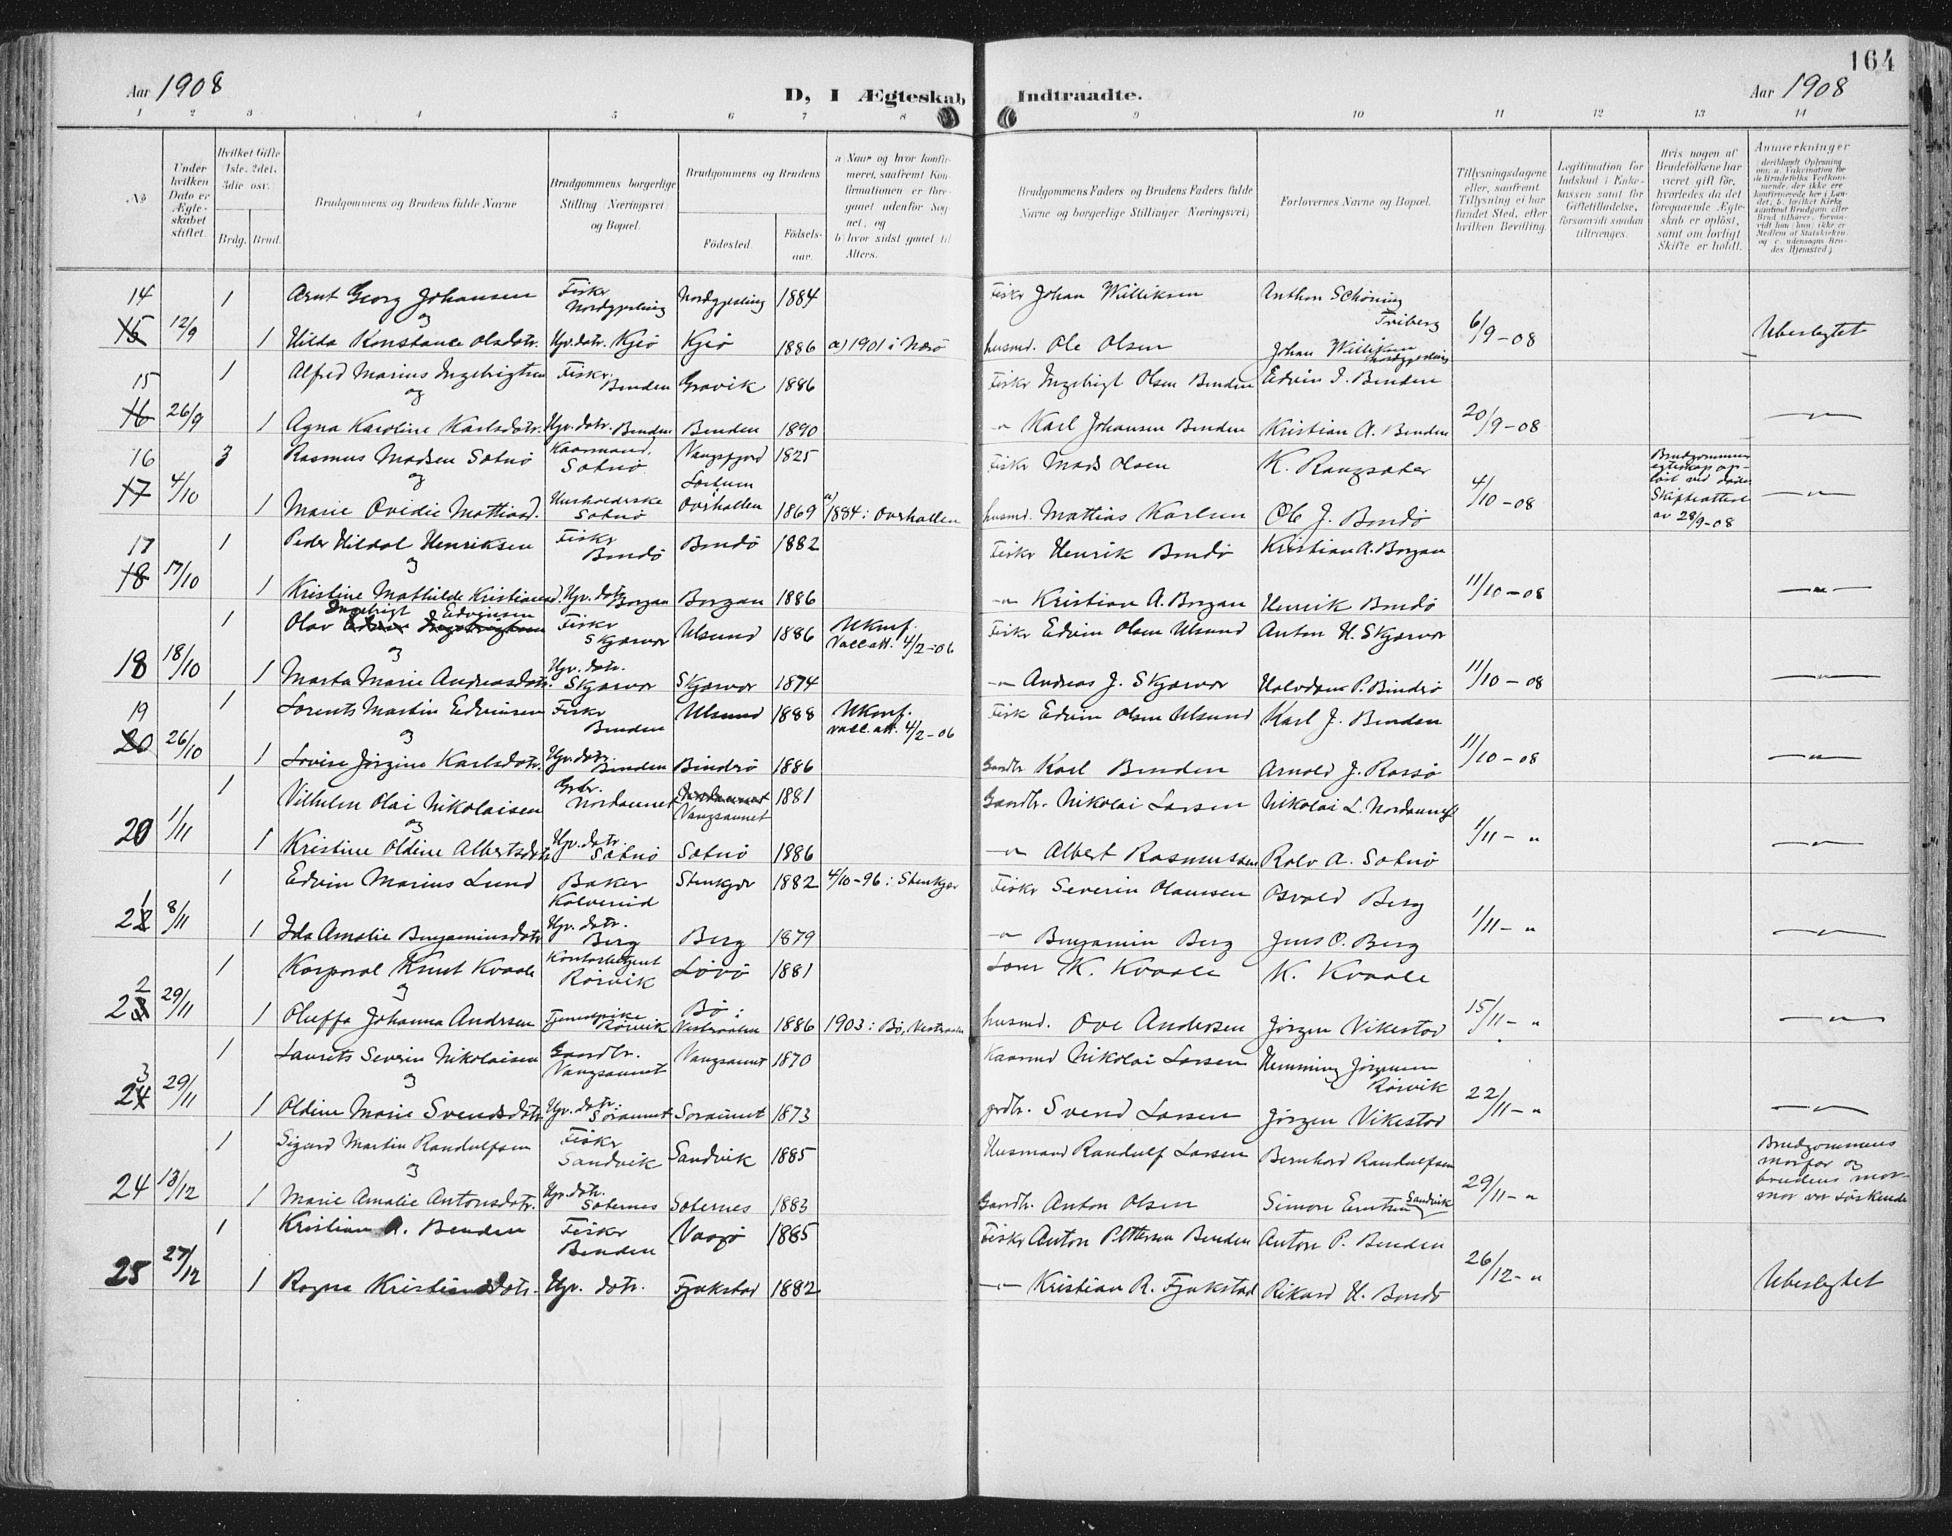 164
Aar 1908
D, I Ægteskab Indtraadte.
Aar 1908
1 2 3 4 5 6 7 8 9 10 11 12 13 14
No
Under hvilken Dato er Ægteskabet stiftet.
Hvilket Gifte 1ste, 2det, 3die osv.
Brdg. Brud.
Brudgommens og Brudens fulde Navne
Brudgommens borgerlige Stilling Næringsvei og Bopæl.
Brudgommens og Brudens
Fødested.
Fødselsaar.
a Naar og hvor konfirmeret, saafremt Konfirmationen er foregaaet udenfor Sognet, og
b hvor sidst gaaet til Alters.
Brudgommens Faders og Brudens Faders fulde Navne og borgerlige Stillinger Næringsvei
Forlovernes Navne og Bopæl.
Tillysningsdagene eller, saafremt Tillysning ei har fundet Sted, efter hvilken Bevilling.
Legitimation for Indskud i Enkekassen samt for Giftetilladelse, forsaavidt saadan tiltrænges.
Hvis nogen af Brudefolkene har været gift før, hvorledes da det foregaaende Ægteskab er opløst, samt om lovligt Skifte er holdt.
Anmerkninger
14 1 Arnt Georg Johansen Fisker Nordgjesling Nordgjesling 1884 Fisker Johan Williksen Anthon Schöning Friberg
og
15 12/9 1 Hilda Konstance Olsdatr. Hjv. datr. Kjeö Kjeö 1886 a) 1901 i Nærö husmd. Ole Olsen Johan Williksen Nordgjesling 6/9-08 Ubeslegtet
15 1 Alfred Marius Ingebrigtsen Fisker Benden Gravik 1886 Fisker Ingebrigt Olsen Benden Edvin I. Benden
og
16 26/9 1 Agna Karoline Karlsdatr. Hjv. datr. Benden Benden 1890 -"- Karl Johansen Benden Kristian A. Benden 20/9-08 -"-
16 3 Rasmus Madsen Satnö Kaarmand. Satnö Vangsfjord 1825 Fisker Mads Olsen K. Rangsæter
og
17 4/10 1 Marie Ovidie Mattiasd. Husholderske Satnö Overhallen 1869 a) 1884 i Overhallen husmd. Mattias Karlsen Ole J. Bondö 4/10-08 Skifteattest av 28/9-08 -"-
17 1 Peder Hildal Henriksen Fisker Bondö Bondö 1882 Fisker Henrik Bondö Kristian A. Borgan
og
18 17/10 1 Kristine Mathilde Kristiansd. Hjv. datr. Borgan Borgan 1886 -"- Kristian A. Borgan Henrik Bondö 11/10-08 -"-
1 Olav Ingebrigt Edvinsen Fisker Skjærvær Ulsund 1886 Ukonf. Vacc att. 4/2-06 Fisker Edvin Olsen Ulsund Anton H. Skjærvær
og
18 18/10 1 Marta Marie Andreasdatr. Hjv. datr. Skjærvær Skjærvær 1874 -"- Andreas J. Skjærvær Halvdan P. Bindrö 11/10-08 -"-
19 1 Lorents Martin Edvinsen Fisker Benden Ulsund 1888 Ukonf. vacc. att. 4/2-06 Fisk Edvin Olsen Ulsund Karl J. Benden
og
20 26/10 1 Lovise Jörgine Karlsdatr. Hjv. datr. Benden Bindrö 1886 Gardbr Karl Benden Arnold J. Rossö 11/10-08 -"-
1 Vilhelm Olai Nikolaisen Gbr. Nordaunet Vangsaunet 1881 Gaardbr. Nikolai Larsen Nikolai L. Nordaunet
og
20 1/11 1 Kristine Oldine Albertsdatr Hjv. datr. Satnö Satnö 1886 -"- Albert Rasmussen Rolv A. Satnö 1/11-" -"-
1 Edvin Marius Lund Baker Kolvereid Stenkjær 1882 4/10-96 i Stenkjær Fisker Severin Olaussen Osvald Berg
21 8/11 1 Ida Amalie Benjaminsdatr Hjv. datr. Berg Berg 1879 -"- Benjamin Berg Jens O. Berg 1/11-" -"-
1 Korporal Knut Kvaale Kontorbetjent Rörvik Lövö 1881 Lærer K. Kvaale K. Kvaale
og
22 29/11 1 Oluffa Johanna Andersen Tjenestpike Rörvik Bö i Vesteraalen 1886 1903 i Bö, Vesteraalen husmd. Ove Andersen Jörgen Vikestad 15/11-" -"-
1 Laurits Severin Nikolaisen Gaardbr. Vangsaunet Vangsaunet 1870 Kaarmd Nikolai Larsen Hemming Jörgensen Rörvik
og
23 29/11 1 Oldine Marie Svendsdatr Hjv. datr. Söraunet Söraunet 1873 grdbr. Svend Larsen Jörgen Vikestad 22/11-" -"-
1 Sigurd Martin Randulfsen Fisker Sandvik Sandvik 1885 Husmand Randulf Larsen Bernhard Randulfsen Brudgommens morfar og brudens mormor var söskende
og
24 13/12 1 Marie Amalie Antonsdatr. Hjv. datr. Saternes Saternes 1883 Gaardbr. Anton Olsen Simon Erntsen Sandvik 29/11-"
1 Kristian A. Benden Fisker Benden Vaagö 1885 Fisker Anton Pettersen Benden Anton P. Benden
25 27/12 1 Ragna Kristiansdatr. Hjv. datr. Fjukstad 1882 -"- Kristian R. Fjukstad Rikard H. Bondö 26/12-" Ubeslegtet